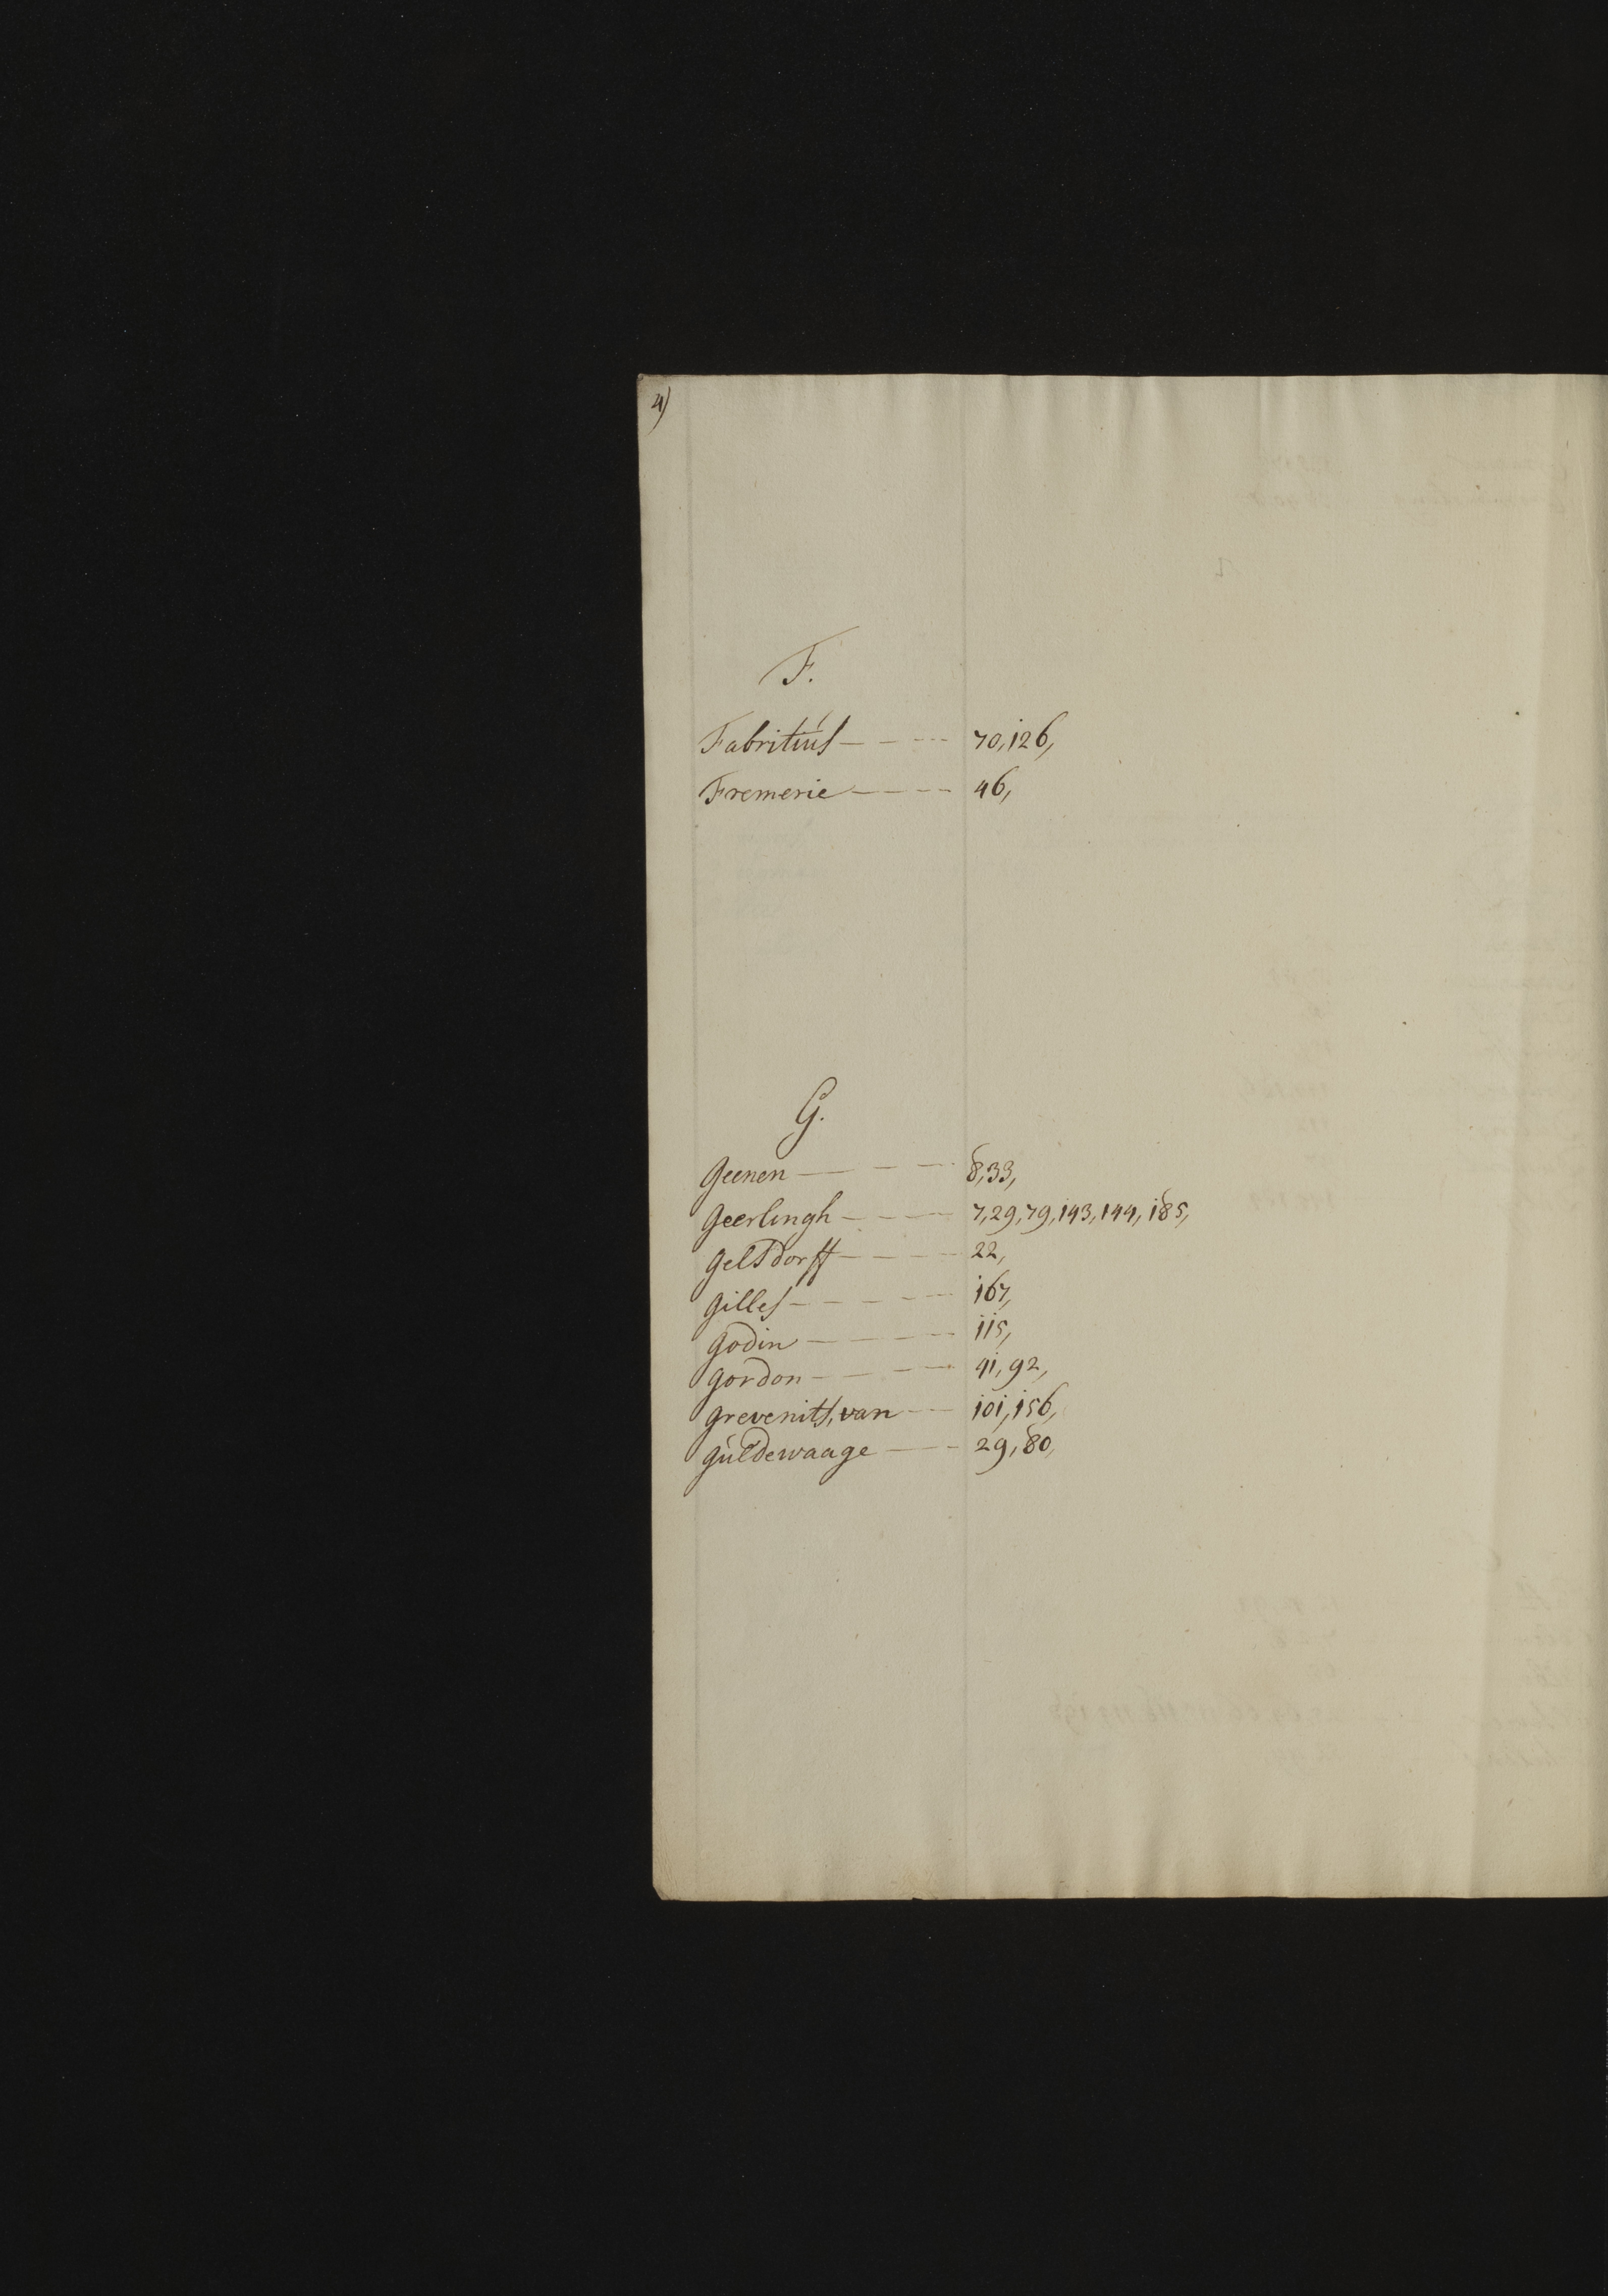 4)
F.
Fabritiús — — --- 70,126,
Fremerie — — — -- 46,
G.
Geenen — — --- 8,33,
Geerlingh — — — 7,29,79,143,144,185,
Gelsdorff — — — 22,
Gilles — — — --- 167,
Godin — — — -- 115,
Gordon — — --- 41,92,
Grevenits, van --- 101,156,
Gúldewaage — — 29,80,